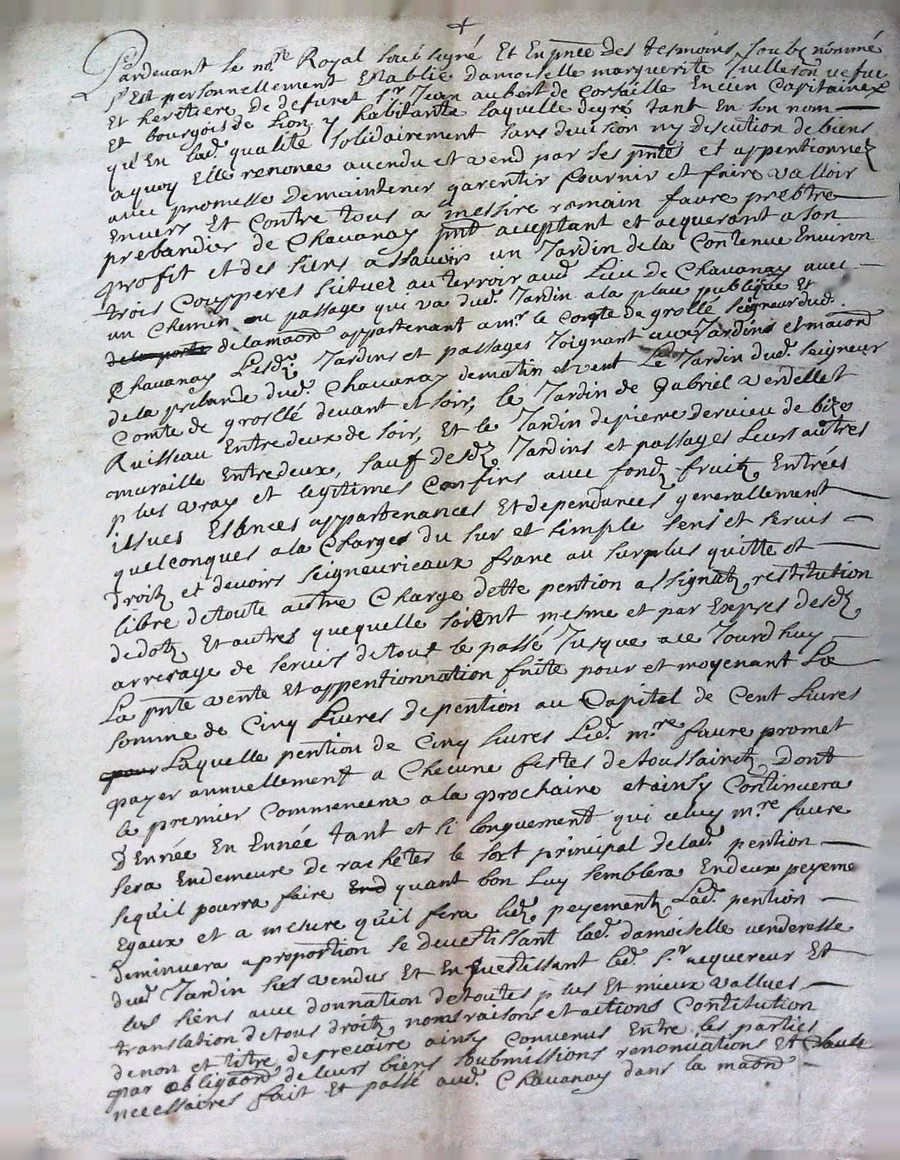 Pardevant le no.re Royal soubsigné Et En pnce des tesmoins soubz nommé
s'est personnellement Establie damoiselle marguerite veufue
Et heretiere de defunct Sr Jean aubert de Corsaille Encien Capitaine
Et bourgois de Lion y habitante laquelle degré tant En son nom
qu'En lad. qualité solidairement sans division ny discution de biens
aquoy Elle renonce a vendu et vend par ses pntes et appentionnez
avec promesse de maintenir garentir fournir et faire valloir
Envers Et Contre tous a messire romain faure prebtre
prebandier de Chavanay pnt acceptant et acquerant a son
profit et des siens a sçavoir un Jardin de la Contenue Environ
trois Coupperes situez au terroir aud. Lieu de Chavanay avec
un Chemin ou passage qui va dud. Jardin a la place publique et
de la maon appartenant a mr. le Comte de grollé Seigneur dud.
Chavanay Lesd. Jardins et passages Joignant aux Jardins et maion
de la prebande dud. Chavanay de matin et vent Le Jardin dud. Seigneur
Comte de grollé devant et soir, le Jardin de Gabriel verdellet
Ruisseau Entredeux de soir, Et le Jardin de pierre dervieu de bize
muraille Entredeux, sauf desd. Jardins et passages Leurs autres
plus vrays et legitimes Confins avec fondz fruitz Entrées
issues Esances appartenances Et dependances generallement
quelconques a la Charges du sur et simple sens et servis
droitz et devoirs seigneuricaux franc au surplus quitte et
libre de toute autre Charge dette pention assignatz restitution
de dotz Et autres que quelle soient mesme et par Expres desd.
arrerage de servis de tout le passé Jusque a ce Jourdhuy
La pnte vente Et appentionnation faite pour et moyenant La
somme de Cinq Livres de pention au Capital de Cent Livres
Laquelle pention de Cinq livres Led. m.re faure promet
payer annuellement a Checune festes de toussainctz Dont
le premier Commencera a la prochaine et ainsy Continuera
D'Ennée En Ennée tant et si longuement qui celuy m.re faure
sera En demeure de rachetes le sort principal de lad. pention
sequ'il pourra faire quant bon Luy semblera En deux peyeme
Egaux et a mesure qu'il fera lesd. peyementz Lad. pention
deminuera a proportion se devestissant lad. damoiselle venderesse
dud. Jardin sus vendus Et En Investissant led. Sr acquereur Et
les siens avec donnation de toutes plus Et mieux vallues
translation de tous droitz noms raisons et actions Contitution
de nom et titre de precaire ainsy Convenus Entre les parties
par obligaon de leurs biens soubmissions renonciations Et Clauses
necessaires fait Et passé aud. Chavanay dans la maon